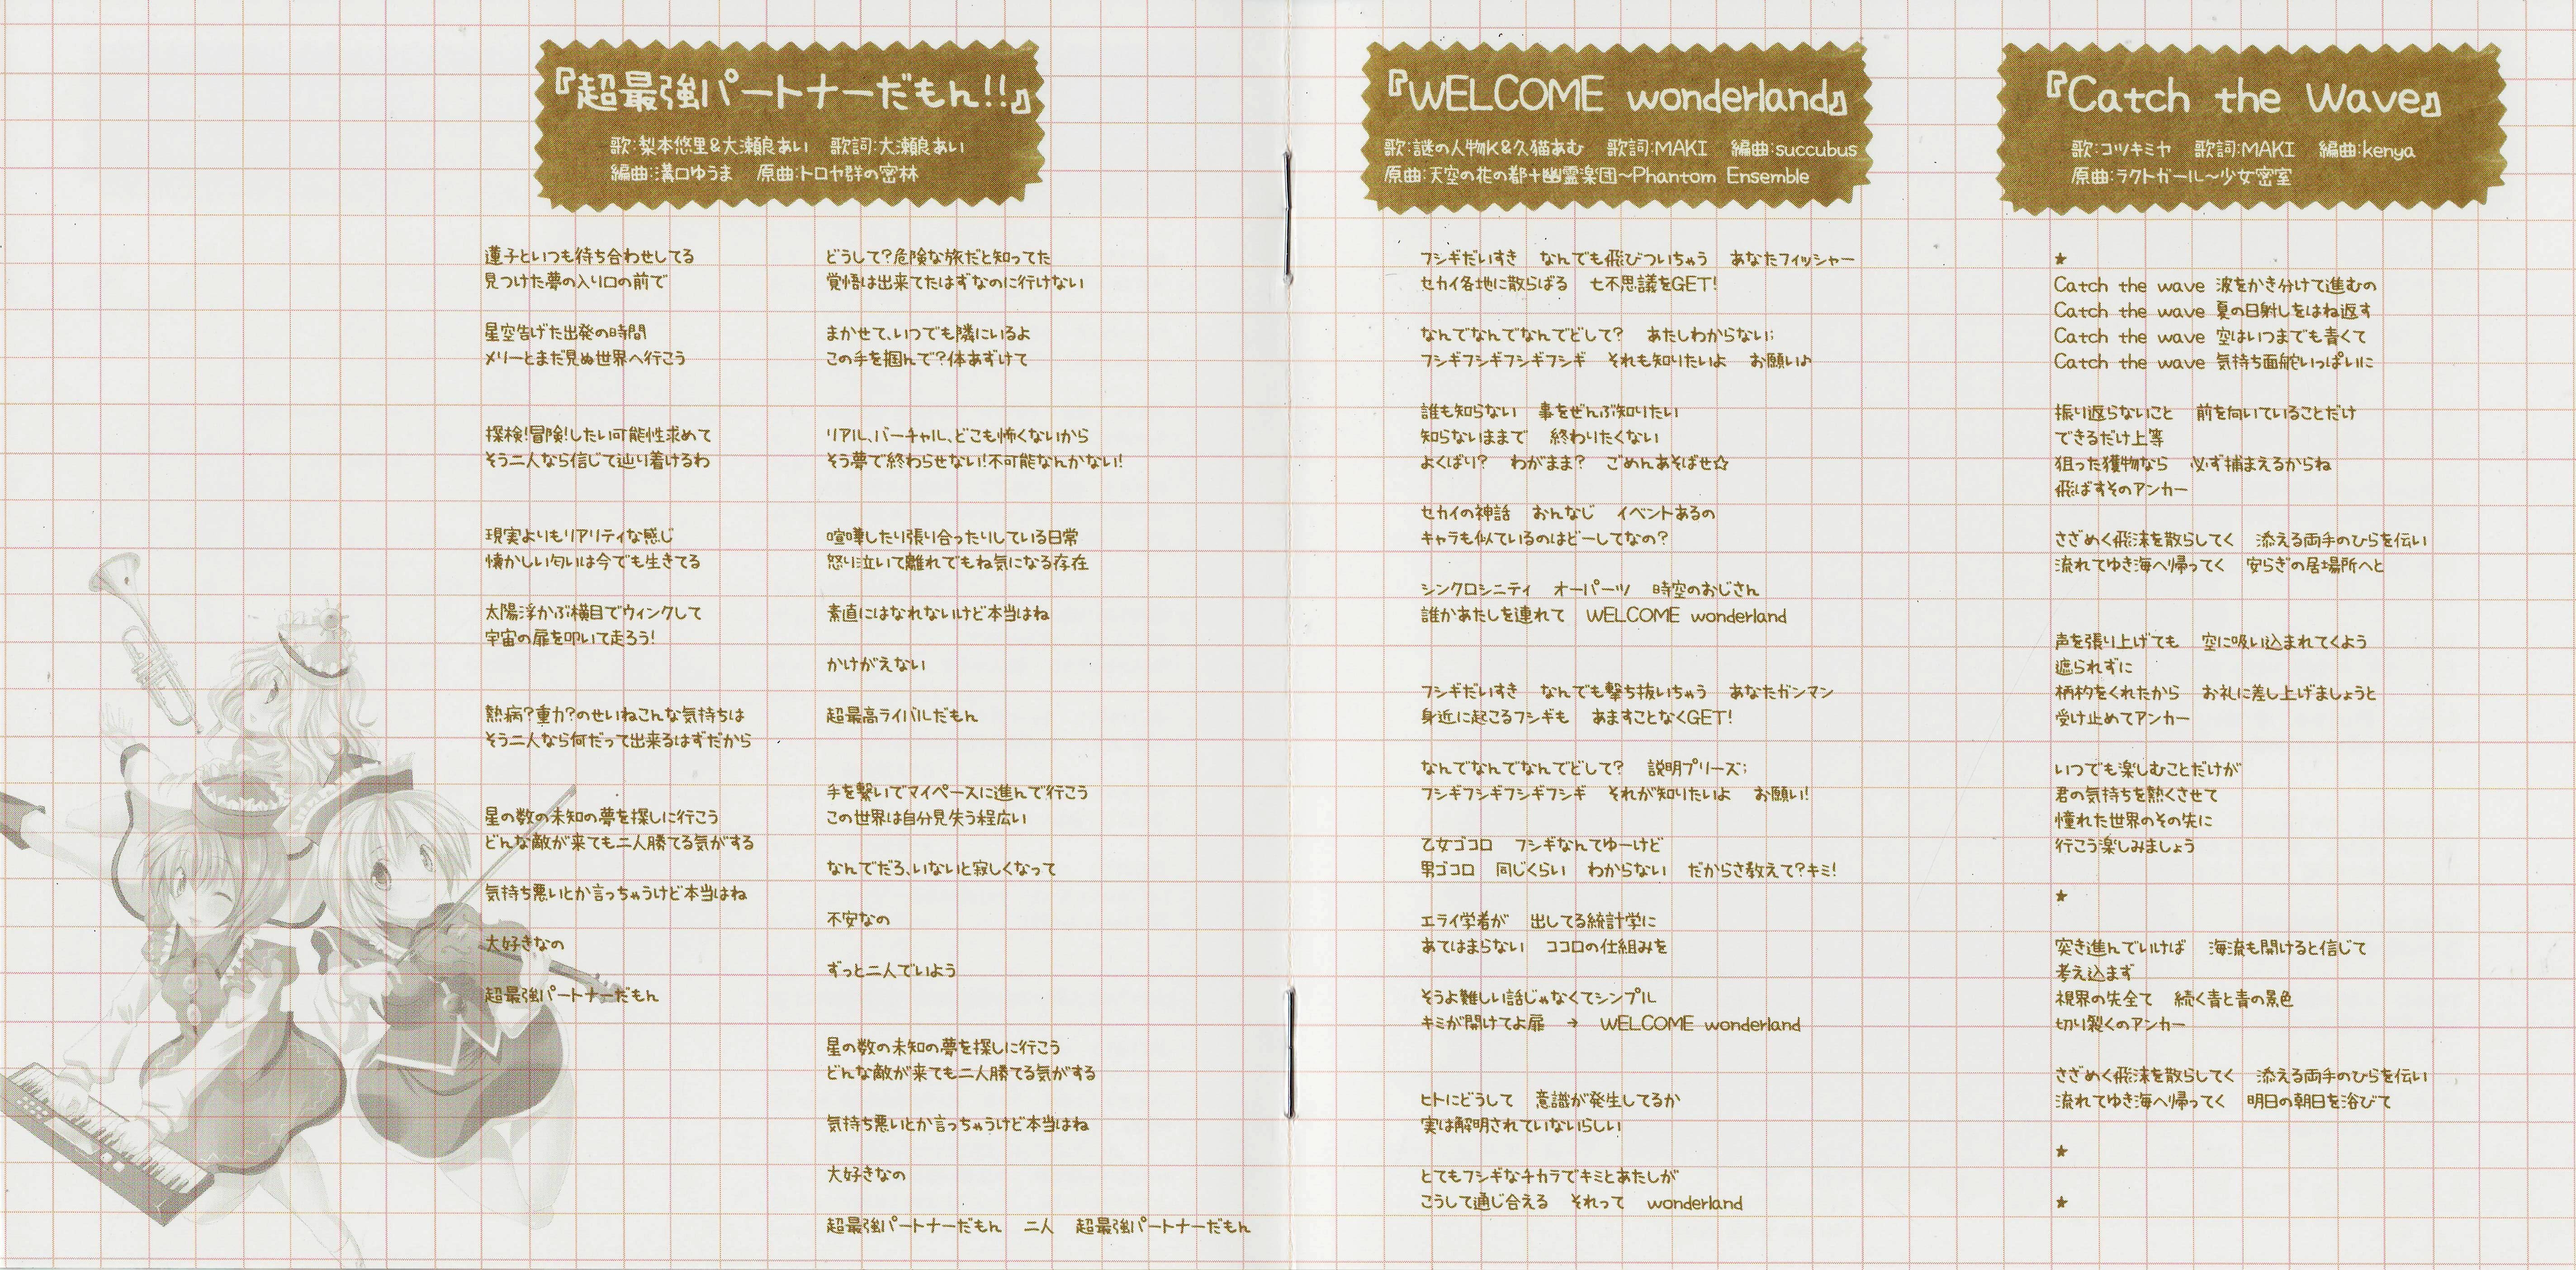 『超最強パートナーだもん!!』
歌:梨本悠里&大瀬良あい 歌詞:大瀬良あい
編曲:溝口ゆうま 原曲:トロヤ群の密林
蓮子といつも待ち合わせしてる
見つけた夢の入り口の前で
星空告げた出発の時間
メリーとまだ見ぬ世界へ行こう
探検!冒険!したい可能性求めて
そう二人なら信じて辿り着けるわ
現実よりもリアリティな感じ
懐かしい匂いは今でも生きてる
太陽浮かぶ横目でウィンクして
宇宙の扉を叩いて走ろう!
熱病?重力?のせいねこんな気持ちは
そう二人なら何だって出来るはずだから
星の数の未知の夢を探しに行こう
どんな敵が来ても二人勝てる気がする
気持ち悪いとか言っちゃうけど本当はね
大好きなの
超最強パートナーだもん
どうして?危険な旅だと知ってた
覚悟は出来てたはずなのに行けない
まかせて、いつでも隣にいるよ
この手を掴んで?体あずけて
リアル、バーチャル、どこも怖くないから
そう夢で終わらせない!不可能なんかない!
喧嘩したり張り合ったりしている日常
怒り泣いて離れてもね気になる存在
素直にはなれないけど本当はね
かけがえない
超最高ライバルだもん
手を繋いでマイペースに進んで行こう
この世界は自分見失う程広い
なんでだろ、いないと寂しくなって
不安なの
ずっと二人でいよう
星の数の未知の夢を探しに行こう
どんな敵が来ても二人勝てる気がする
気持ち悪いとか言っちゃうけど本当はね
大好きなの
超最強パートナーだもん 二人 超最強パートナーだもん
『WELCOME wonderland』
歌:謎の人物K&久猫あむ 歌詞:MAKI 編曲:succubus
原曲:天空の花の都+幽霊楽団～Phantom Ensemble
フシギだいすき なんでも飛びついちゃう あなたフィッシャー
セカイ各地に散らばる 七不思議をGET!
なんでなんでなんでどして? あたしわからない;
フシギフシギフシギフシギ それも知りたいよ お願い♪
誰も知らない 事をぜんぶ知りたい
知らないままで 終わりたくない
よくばり? わがまま? ごめんあそばせ☆
セカイの神話 おんなじ イベントあるの
キャラも似ているのはどーしてなの?
シンクロシニティ オーパーツ 時空のおじさん
誰かあたしを連れて WELCOME wonderland
フシギだいすき なんでも撃ち抜いちゃう あなたガンマン
身近に起こるフシギも あますことなくGET!
なんでなんでなんでどして? 説明プリーズ;
フシギフシギフシギフシギ それが知りたいよ お願い!
乙女ゴコロ フシギなんてゆーけど
男ゴコロ 同じくらい わからない だからさ教えて?キミ!
エライ学者が 出してる統計学に
あてはまらない ココロの仕組みを
そうよ難しい話じゃなくてシンプル
キミが開けてよ扉 → WELCOME wonderland
ヒトにどうして 意識が発生してるか
実は解明されていないらしい
とてもフシギなチカラでキミとあたしが
こうして通じ合える それって wonderland
『Catch the Wave』
歌:コツキミヤ 歌詞:MAKI 編曲:kenya
原曲:ラクトガール～少女密室
★
Catch the wave 波をかき分けて進むの
Catch the wave 夏の日射しをはね返す
Catch the wave 空はいつまでも青くて
Catch the wave 気持ち面舵いっぱいに
振り返らないこと 前を向いていることだけ
できるだけ上等
狙った獲物なら 必ず捕まえるからね
飛ばすそのアンカー
さざめく飛沫を散らしてく 添える両手のひらを伝い
流れてゆき海へ帰ってく 安らぎの居場所へと
声を張り上げても 空に吸い込まれてくよう
遮られずに
柄杓をくれたから お礼に差し上げましょうと
受け止めてアンカー
いつでも楽しむことだけが
君の気持ちを熱くさせて
憧れた世界のその先に
行こう楽しみましょう
★
突き進んでいけば 海流も開けると信じて
考え込まず
視界の先全て 続く青と青の景色
切り裂くのアンカー
さざめく飛沫を散らしてく 添える両手のひらを伝い
流れてゆき海へ帰ってく 明日の朝日を浴びて
★
★